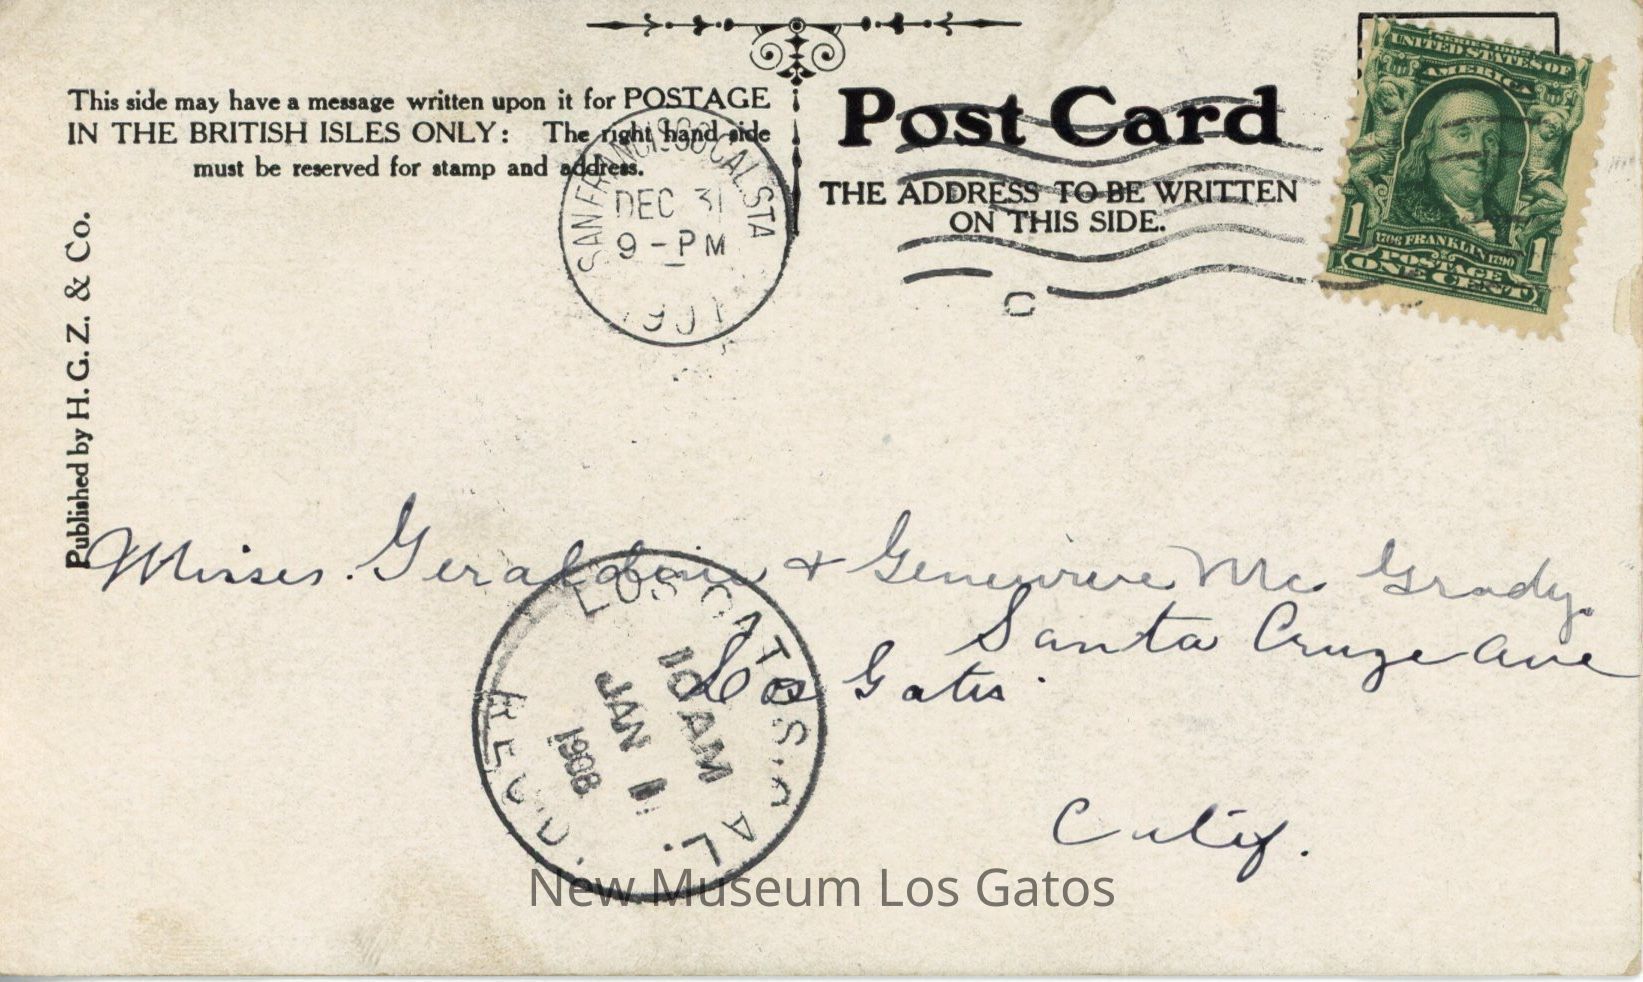 This side may have a message written upon it for POSTAGE
IN THE BRITISH ISLES ONLY: The right hand side
must be reserved for stamp and address.
Post Card
THE ADDRESS TO BE WRITTEN
ON THIS SIDE.
SERIES 1902
UNITED STATES OF
AMERICA
1 1706 FRANKLIN 1790 1
POSTAGE
ONE CENT
SAN FRANCISCO CAL. STA
DEC 31
9 - PM
1907
C
Published by H. G. Z. & Co.
Misses. Geraldine & Genevieve Mc Grady.
Santa Cruze Ave
Los Gatos
Calif.
LOS GATOS, CAL.
10 AM
JAN 1
1908
REC'D.
New Museum Los Gatos